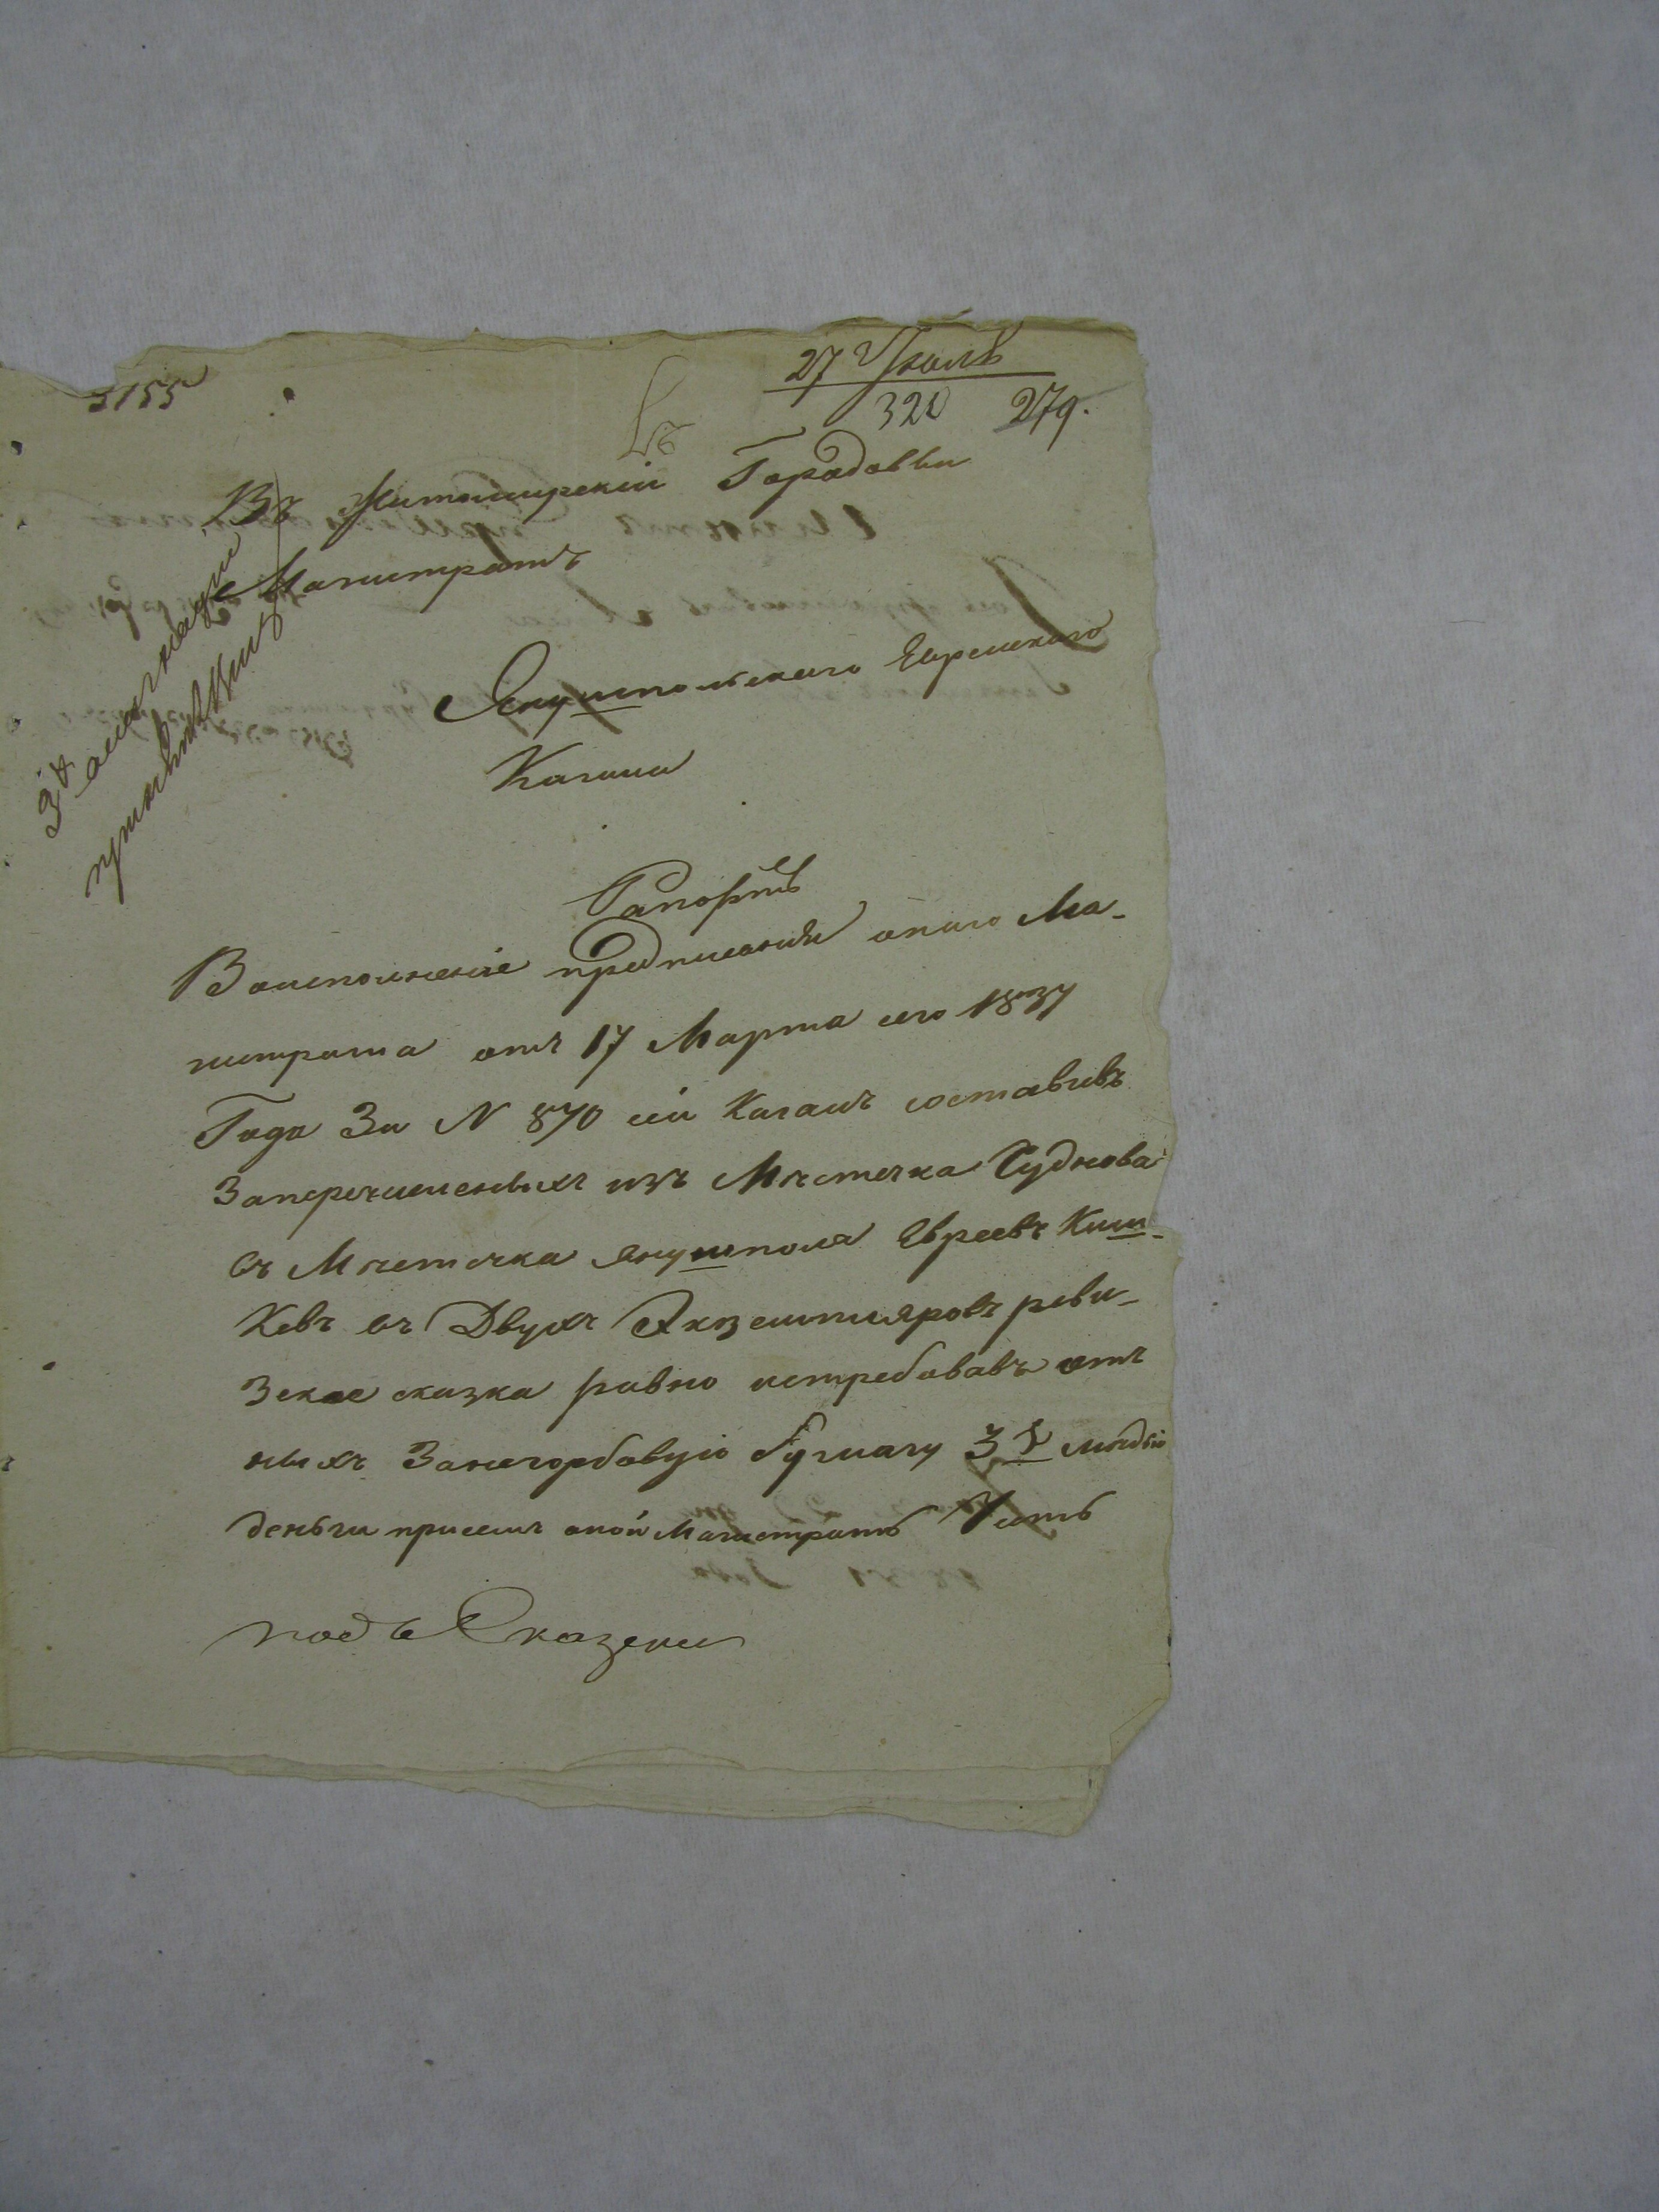 3155
27 Июль
320 279.
Въ Житомирскій Городовы
Магистратъ
Янушпольского Еврейского
Кагала
Рапортъ
Воисполненіе предписания оного Ма-
гистрата отъ 17 Марта сего 1834
Года За N 870 сей Кагалъ составивъ
Заперечисленыхъ изъ Мѣстечка Чуднова
въ Мѣстечка Янушполя Евреевъ Киш-
Кевъ въ Двухъ Экземпляровъ реви-
Зская сказка равно истребовавъ отъ
ныхъ Занегорбовую бумагу 3 мѣдью
деньги при семъ оной Магистратъ
подъ